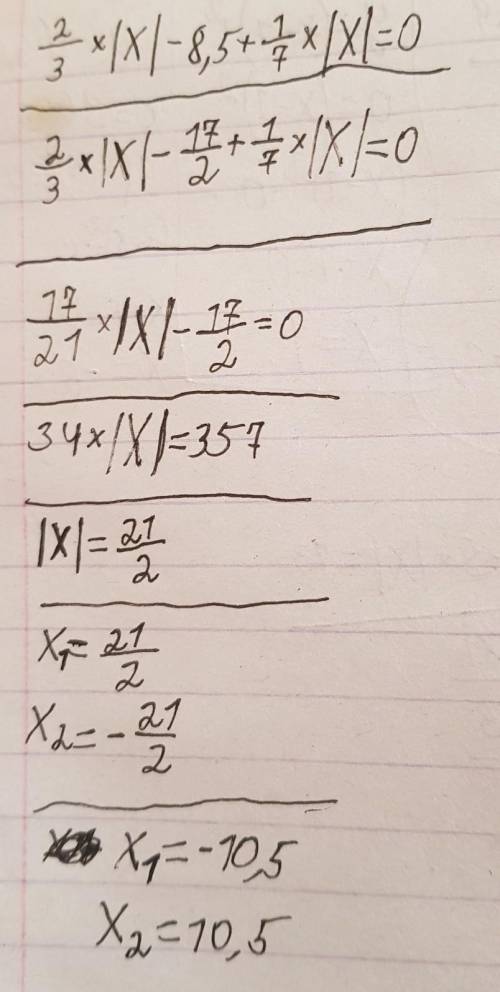 2/3 × |X| - 8,5 + 1/7 × |X| = 0
2/3 × |X| - 17/2 + 1/7 × |X| = 0
17/21 × |X| - 17/2 = 0
34 × |X| = 357
|X| = 21/2
X₁ = 21/2
X₂ = - 21/2
X₁ = -10,5
X₂ = 10,5